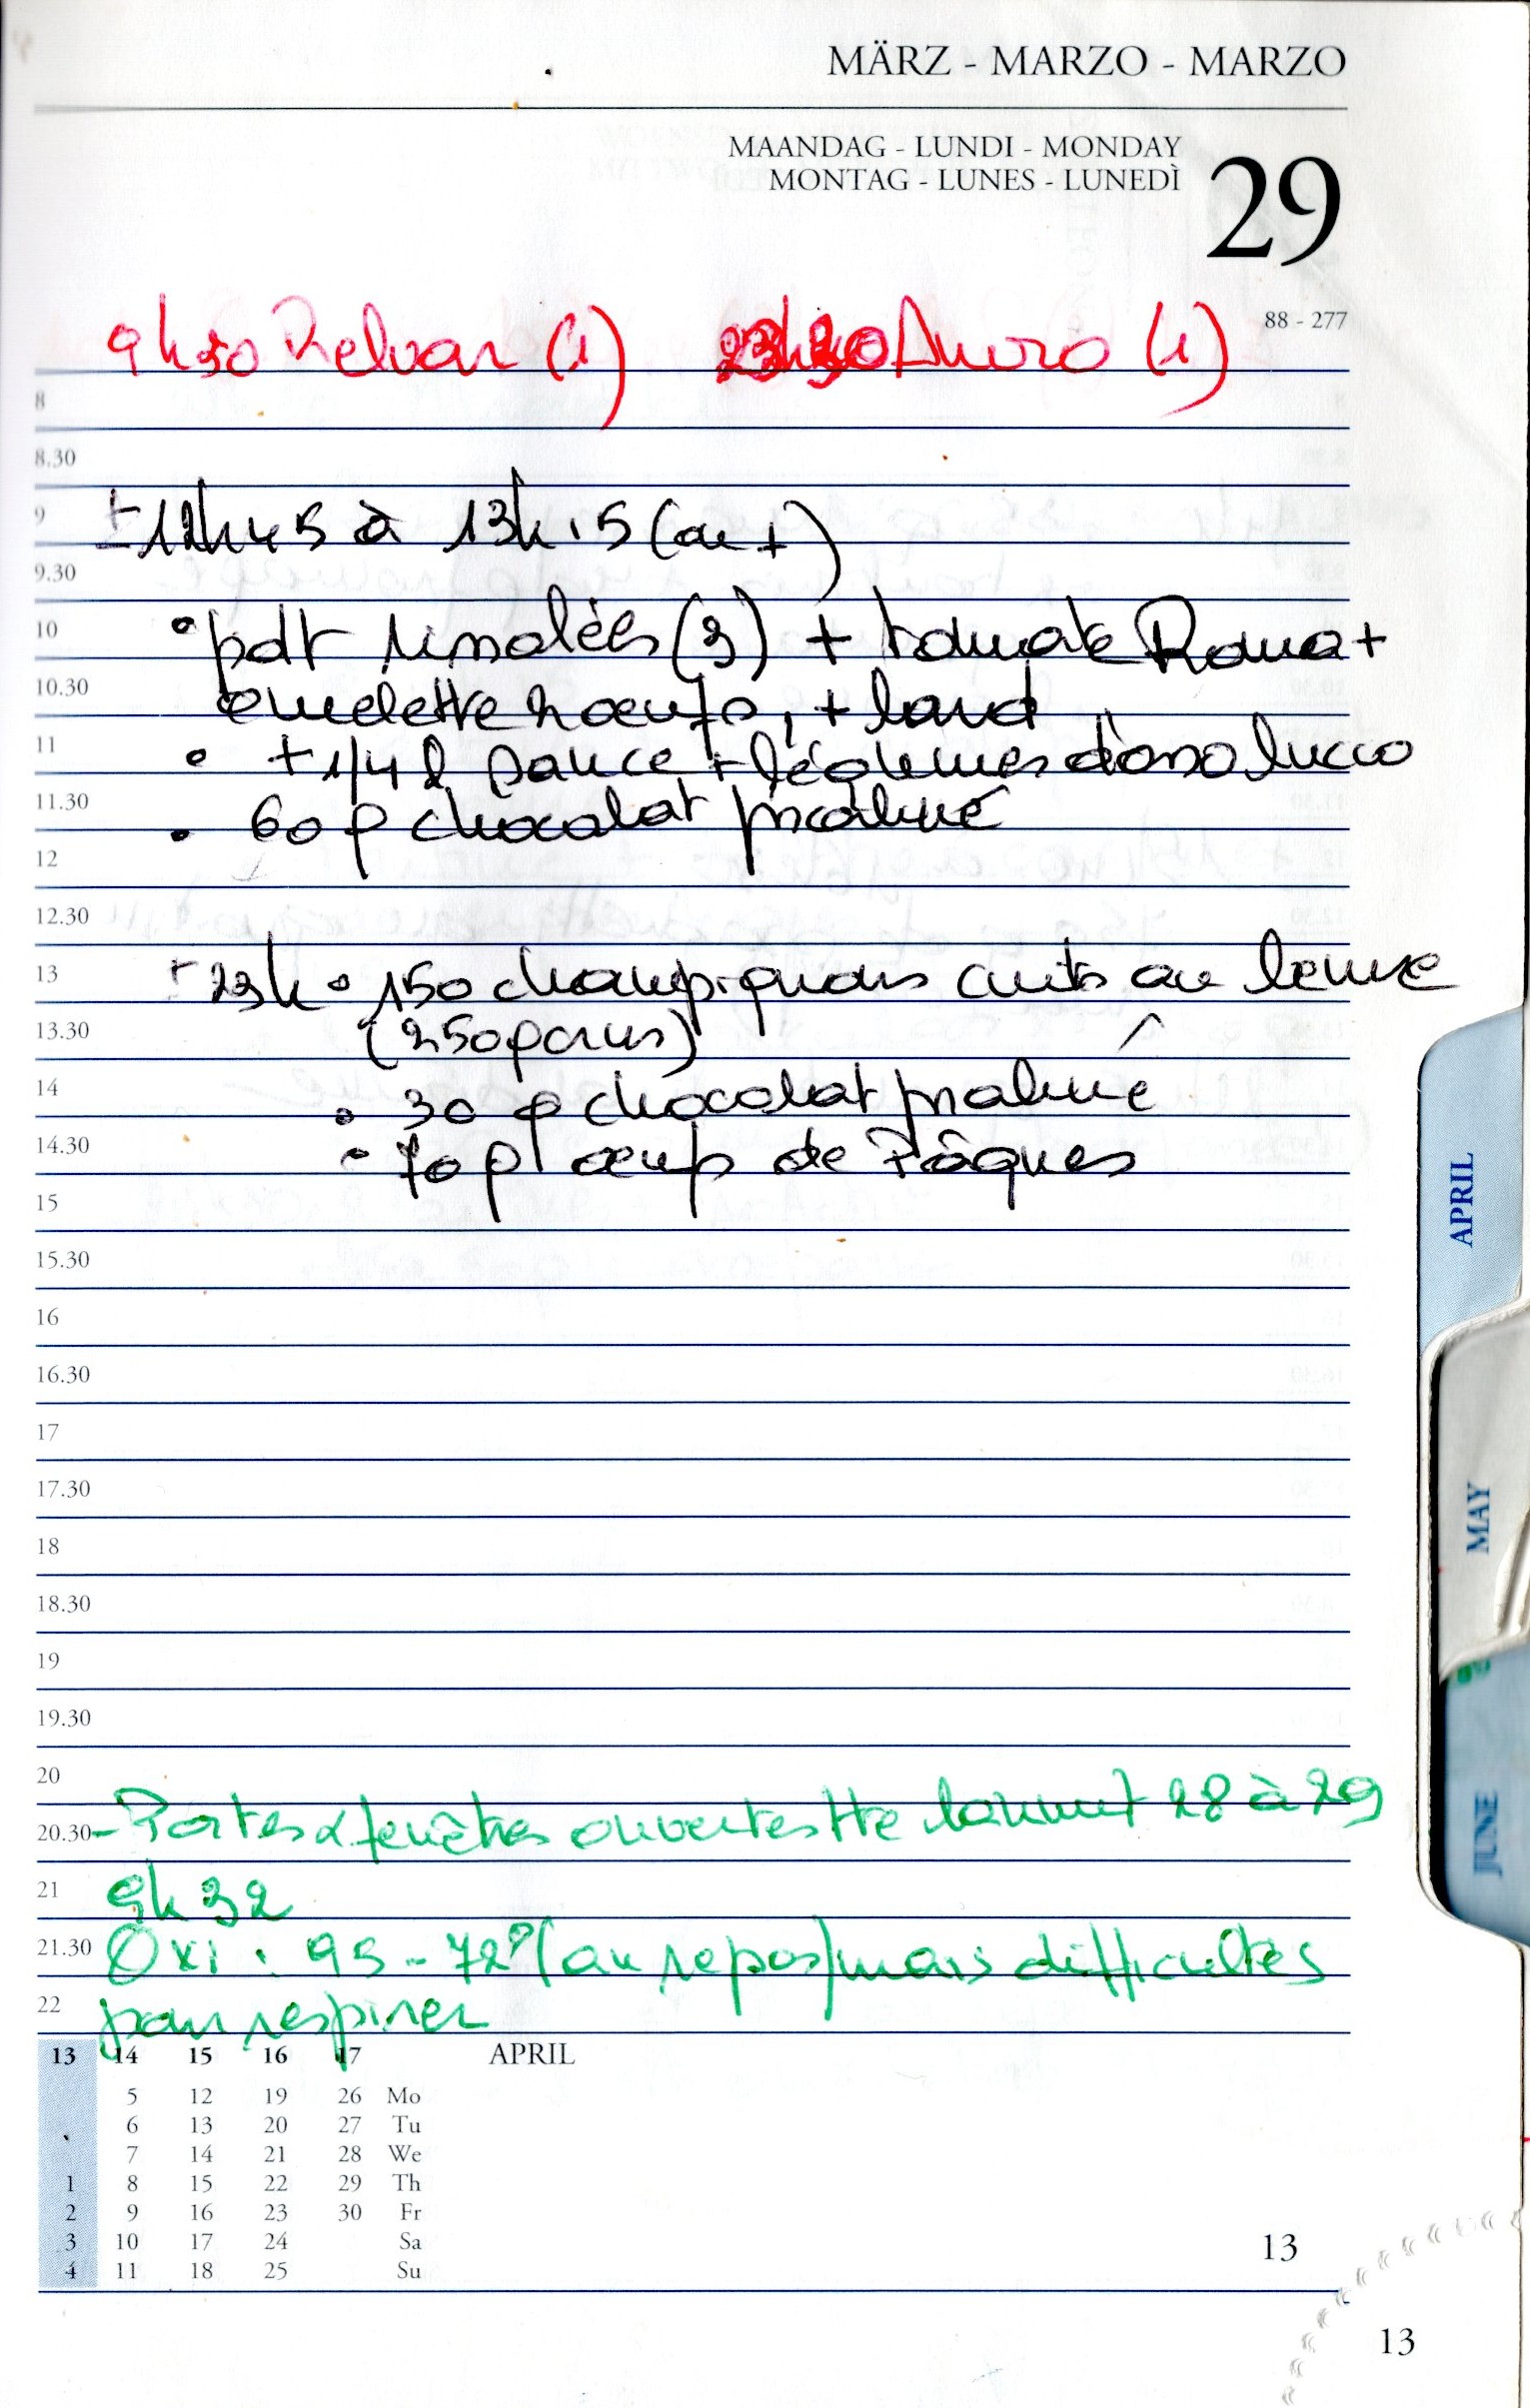 MÄRZ - MARZO - MARZO
MAANDAG - LUNDI - MONDAY
MONTAG - LUNES - LUNEDÌ
29
88 - 277
9h30 Relvar (1) 23h30 (1)
8
8.30
± 12h45 à 13h15 (ou +)
9
9.30
• pdt rissolées (3) + tomate Roma +
10
omelette 2 oeufs, + lard
10.30
• + 1/4 l sauce + légumes d'osso bucco
11
• 60 g chocolat praliné
11.30
12
12.30
± 23h • 150 champignons cuits au beurre
13
(250 g crus)
13.30
• 30 g chocolat praliné
14
• 70 g oeufs de Pâques
14.30
15
15.30
16
16.30
17
17.30
18
18.30
19
19.30
20
- Portes & fenêtres ouvertes tte la nuit 28 à 29
20.30
9h32
21
Oxi : 95 - 72 (au repos) mais difficultés
21.30
pour respirer
22
13 14 15 16 17 APRIL
5 12 19 26 Mo
6 13 20 27 Tu
7 14 21 28 We
1 8 15 22 29 Th
2 9 16 23 30 Fr
3 10 17 24 Sa
4 11 18 25 Su
13
13
APRIL
MAY
JUNE